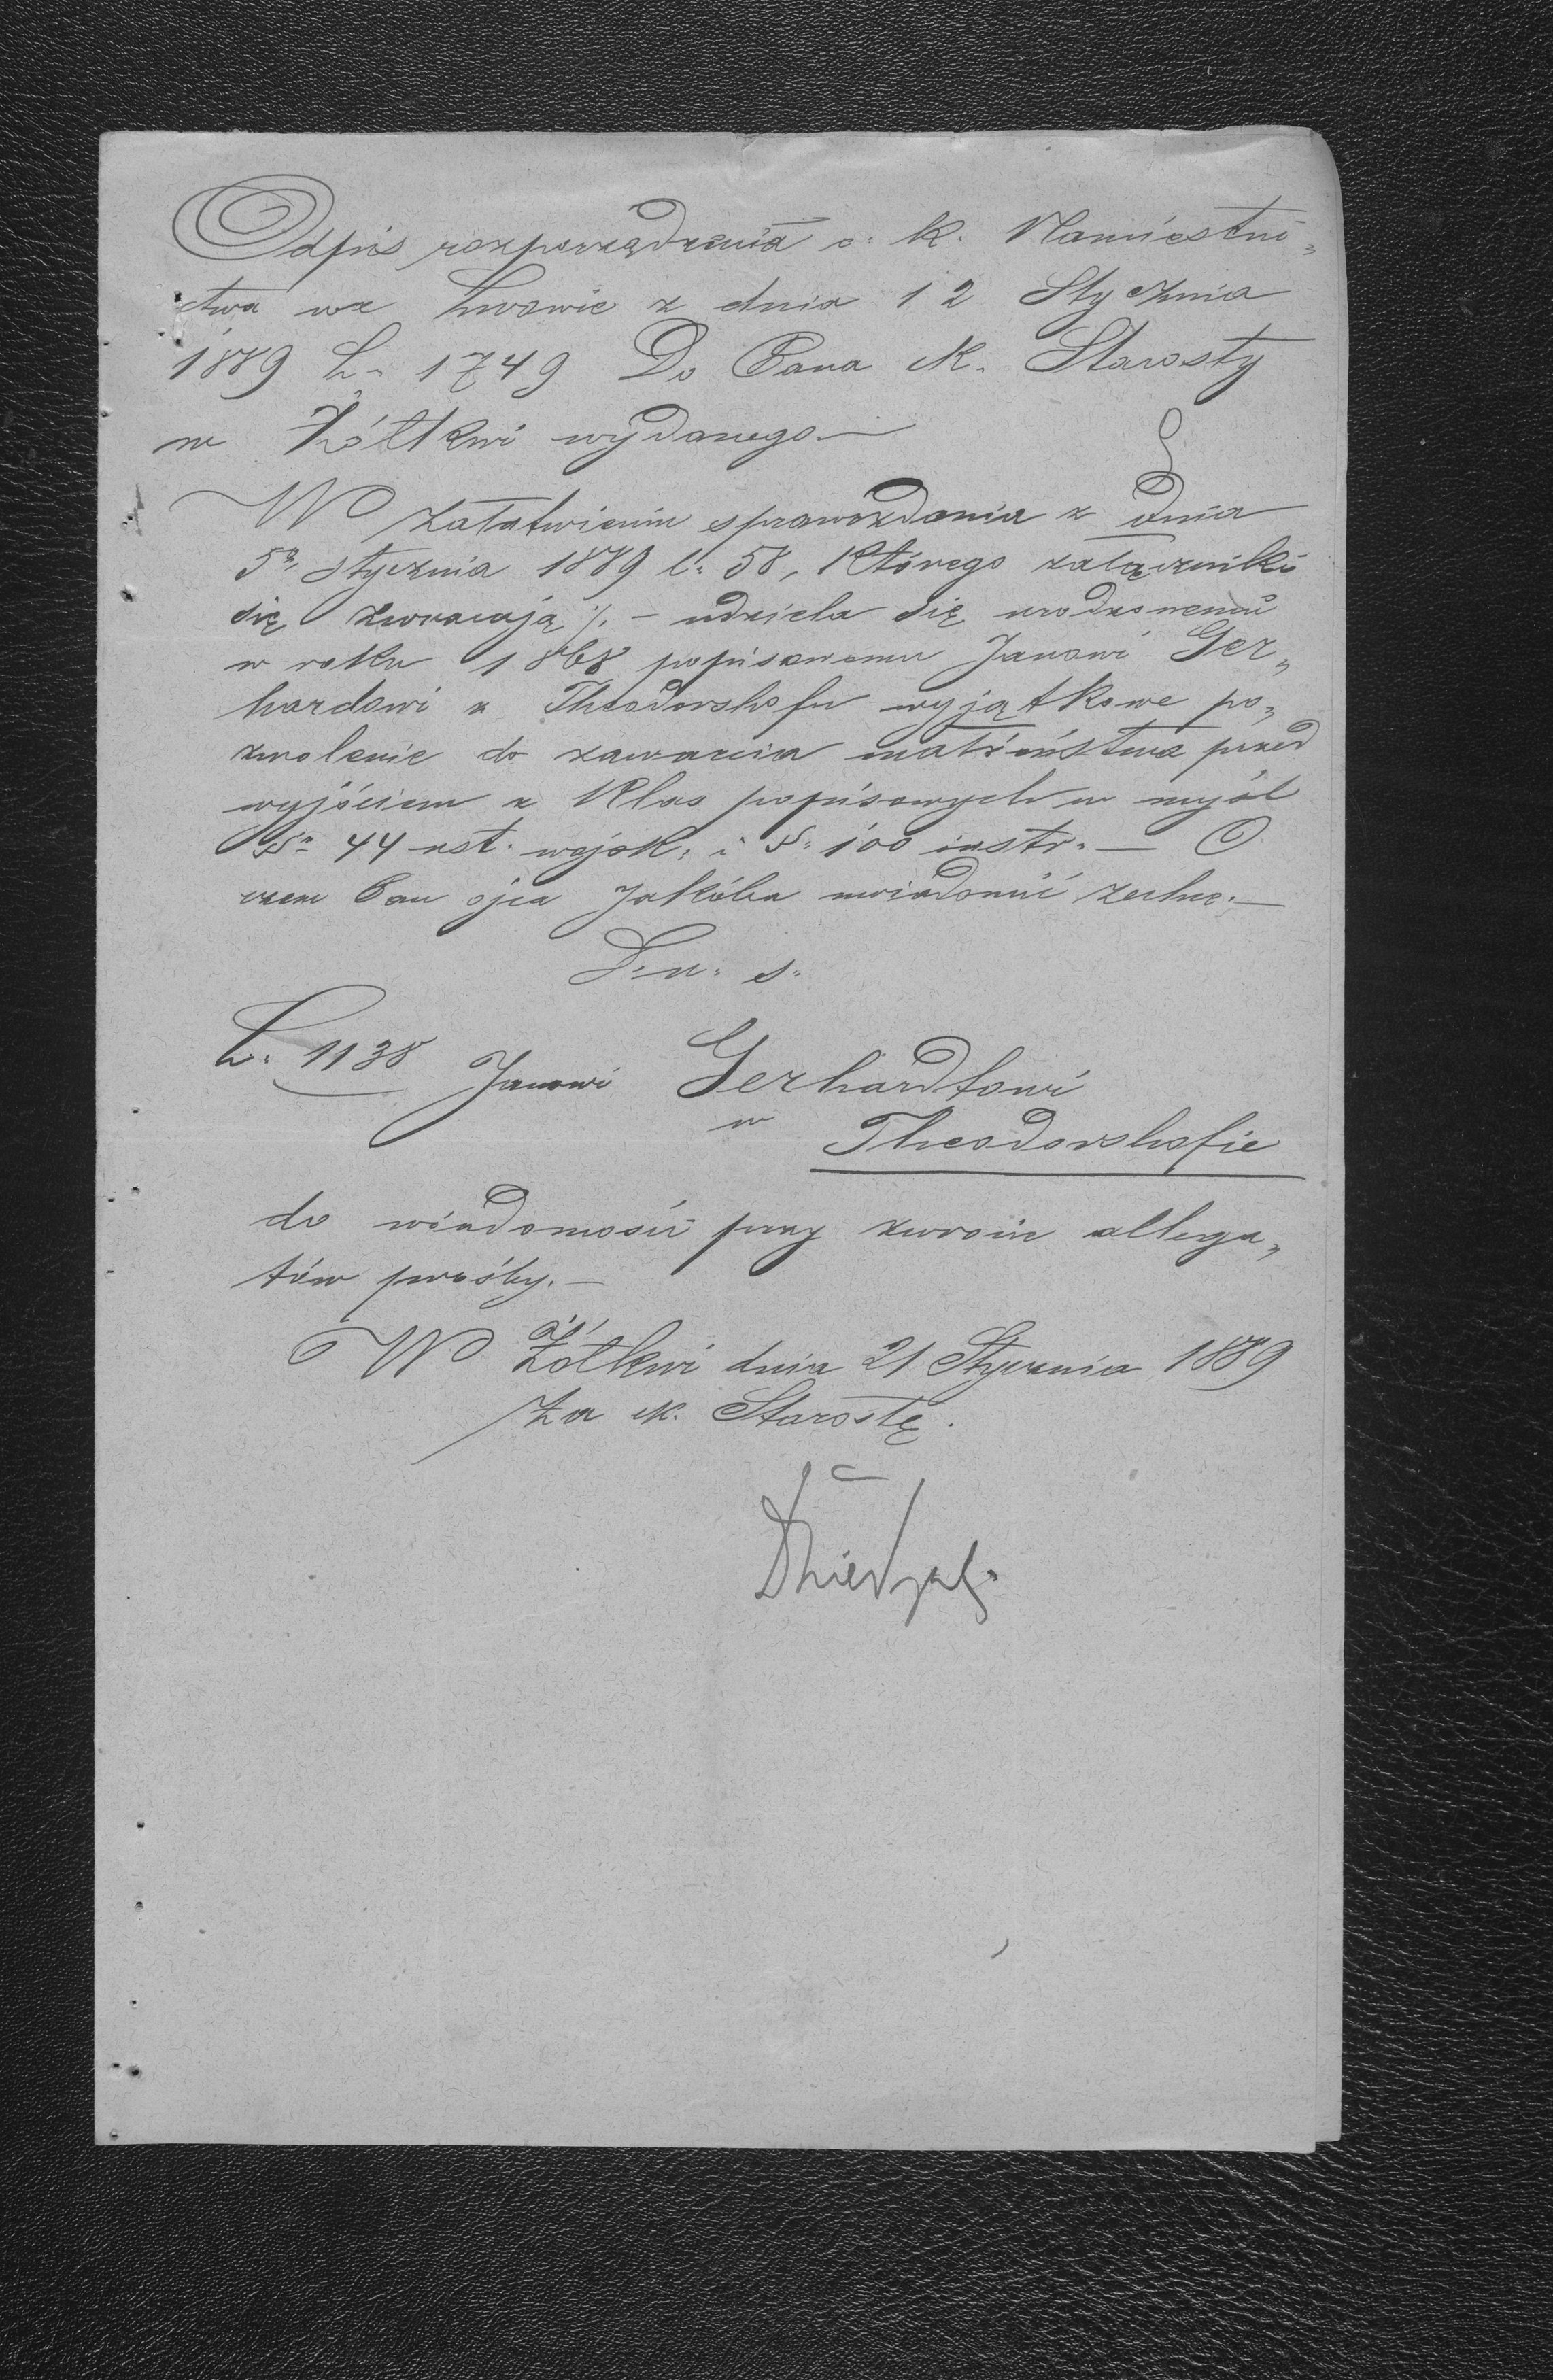 Odpis rozporządzenia c. k. Namiestni-
ctwa we Lwowie z dnia 12 Stycznia
1889 L. 1749 Do Pana ck. Starosty
w Żółkwi wydanego.—
W załatwieniu sprawozdania z dnia
5go stycznia 1889 l. 58, którego załączniki
się zwracają ·/. – udziela się urodzonemu
w roku 1868 popisowemu Janowi Ger„
hardowi z Theodorshofu wyjątkowe po„
zwolenie do zawarcia małżeństwa przed
wyjściem z klas popisowych w myśl
§. 44 ust. wojsk. i §. 100 instr. — O
czem Pan ojca Jakóba uwiadomić zechce.—
L. 1138 Janowi Gerhardtowi
w
Theodorshofie
do wiadomości przy zwrocie allega„
tów prośby.—
W Żółkwi dnia 21 Stycznia 1889
Za ck. Starostę.